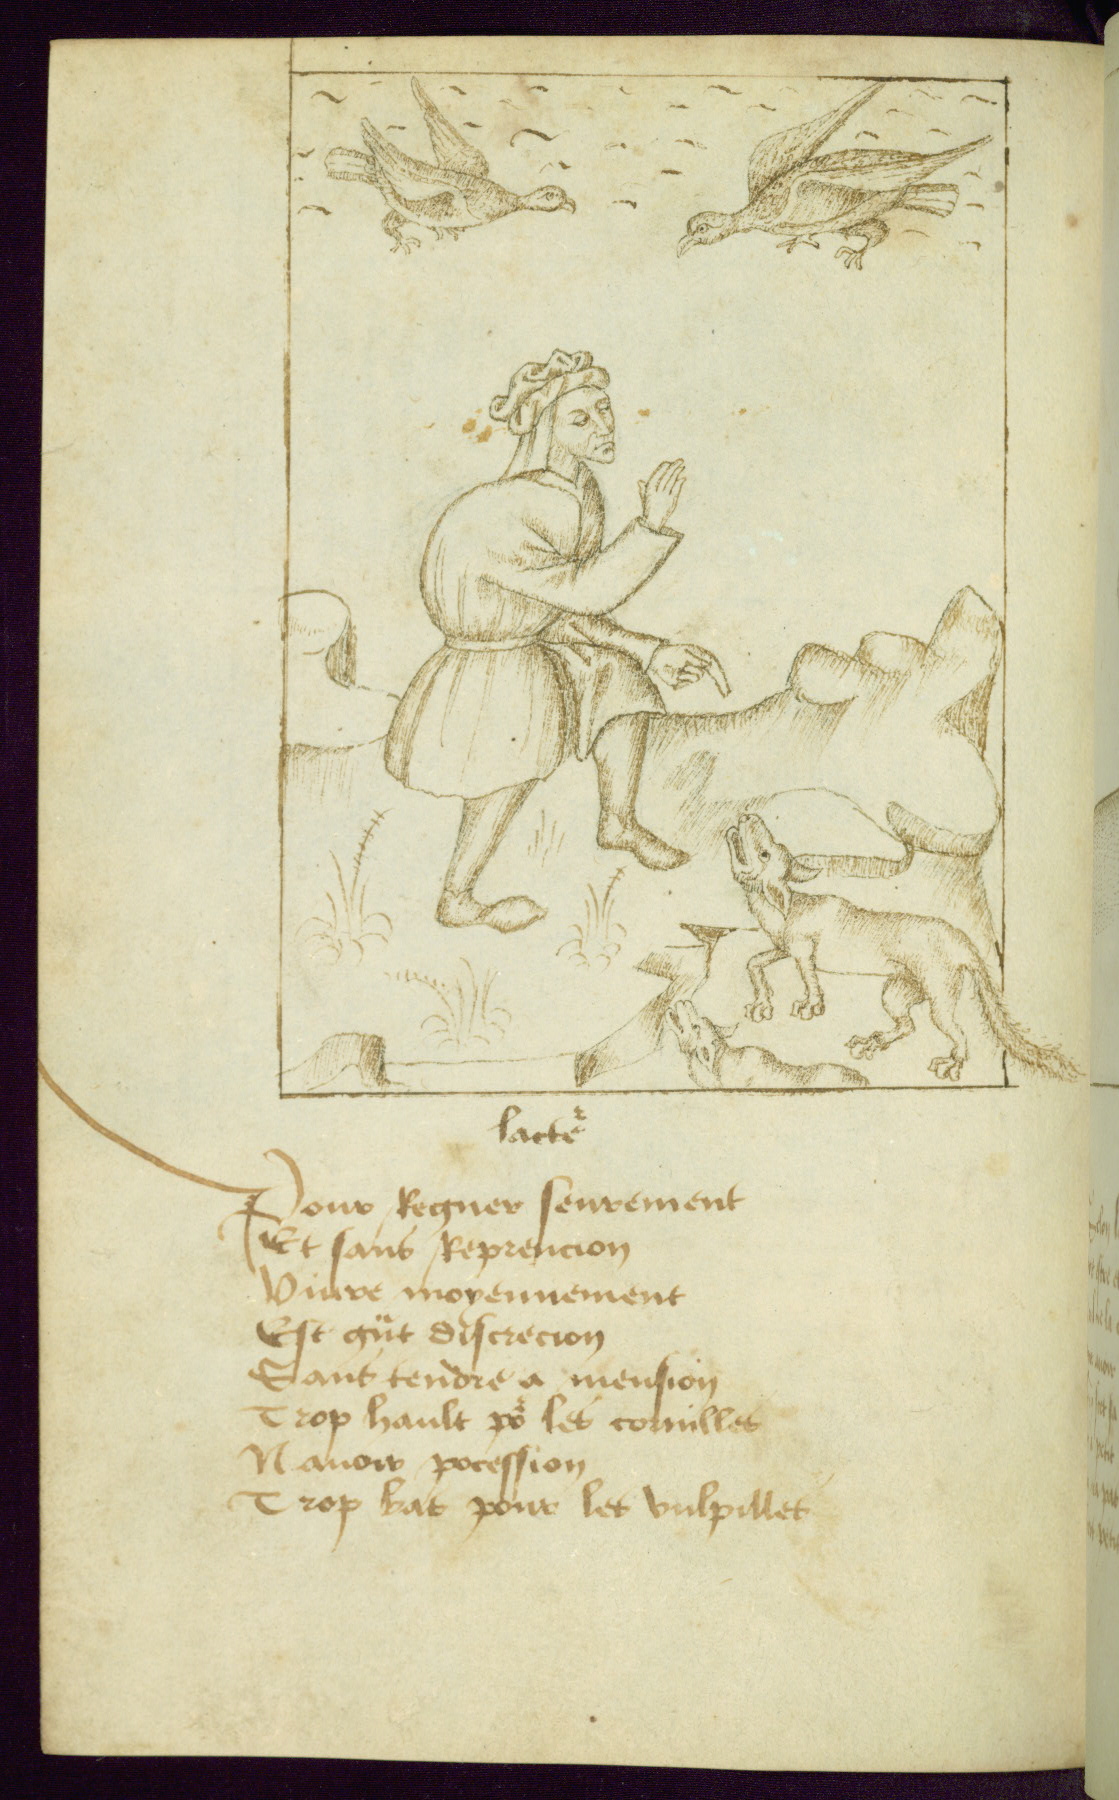 lacteᷣ
Pour Regner seurement
Et sans Reprencion
Viure moyennement
Est gᷓt discrecion
Sans tendre a mension
Trop hault poᷣ les cornilles
N auoir pocession
Trop bas pour les vulpilles